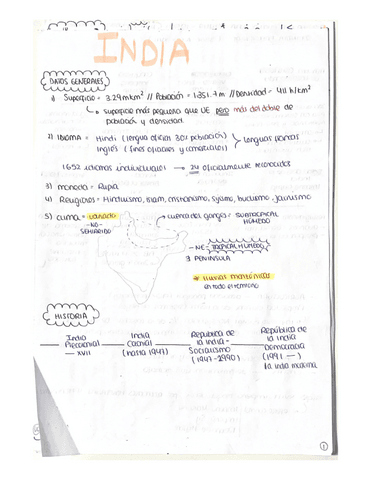 INDIA
DATOS GENERALES
1) Superficie = 3.29 m km² // Población = 1.351.7 m // Densidad = 411 h/km²
↳ superficie más pequeña que UE pero más del doble de
población y densidad.
2) IDIOMA = Hindi (lengua oficial 30% población)
Inglés (fines oficiales y comerciales)
lenguas francas
1652 idiomas individuales → 24 oficialmente reconocidos
3) moneda = Rupia
4) Religiones = Hinduismo, islam, cristianismo, sijismo, budismo, jainismo
5) clima = variado
-NO-
SEMIÁRIDO
→ cuenca del ganges = SUBTROPICAL
HÚMEDO
- NE = TROPICAL HÚMEDO
y PENÍNSULA
* lluvias monzónicas
en todo el territorio
HISTORIA
India
Precolonial
— XVII
India
Colonial
(hasta 1947)
República de
la India -
Socialismo
(1947-1990)
República de
la India
Democracia
(1991 — )
la india moderna
1